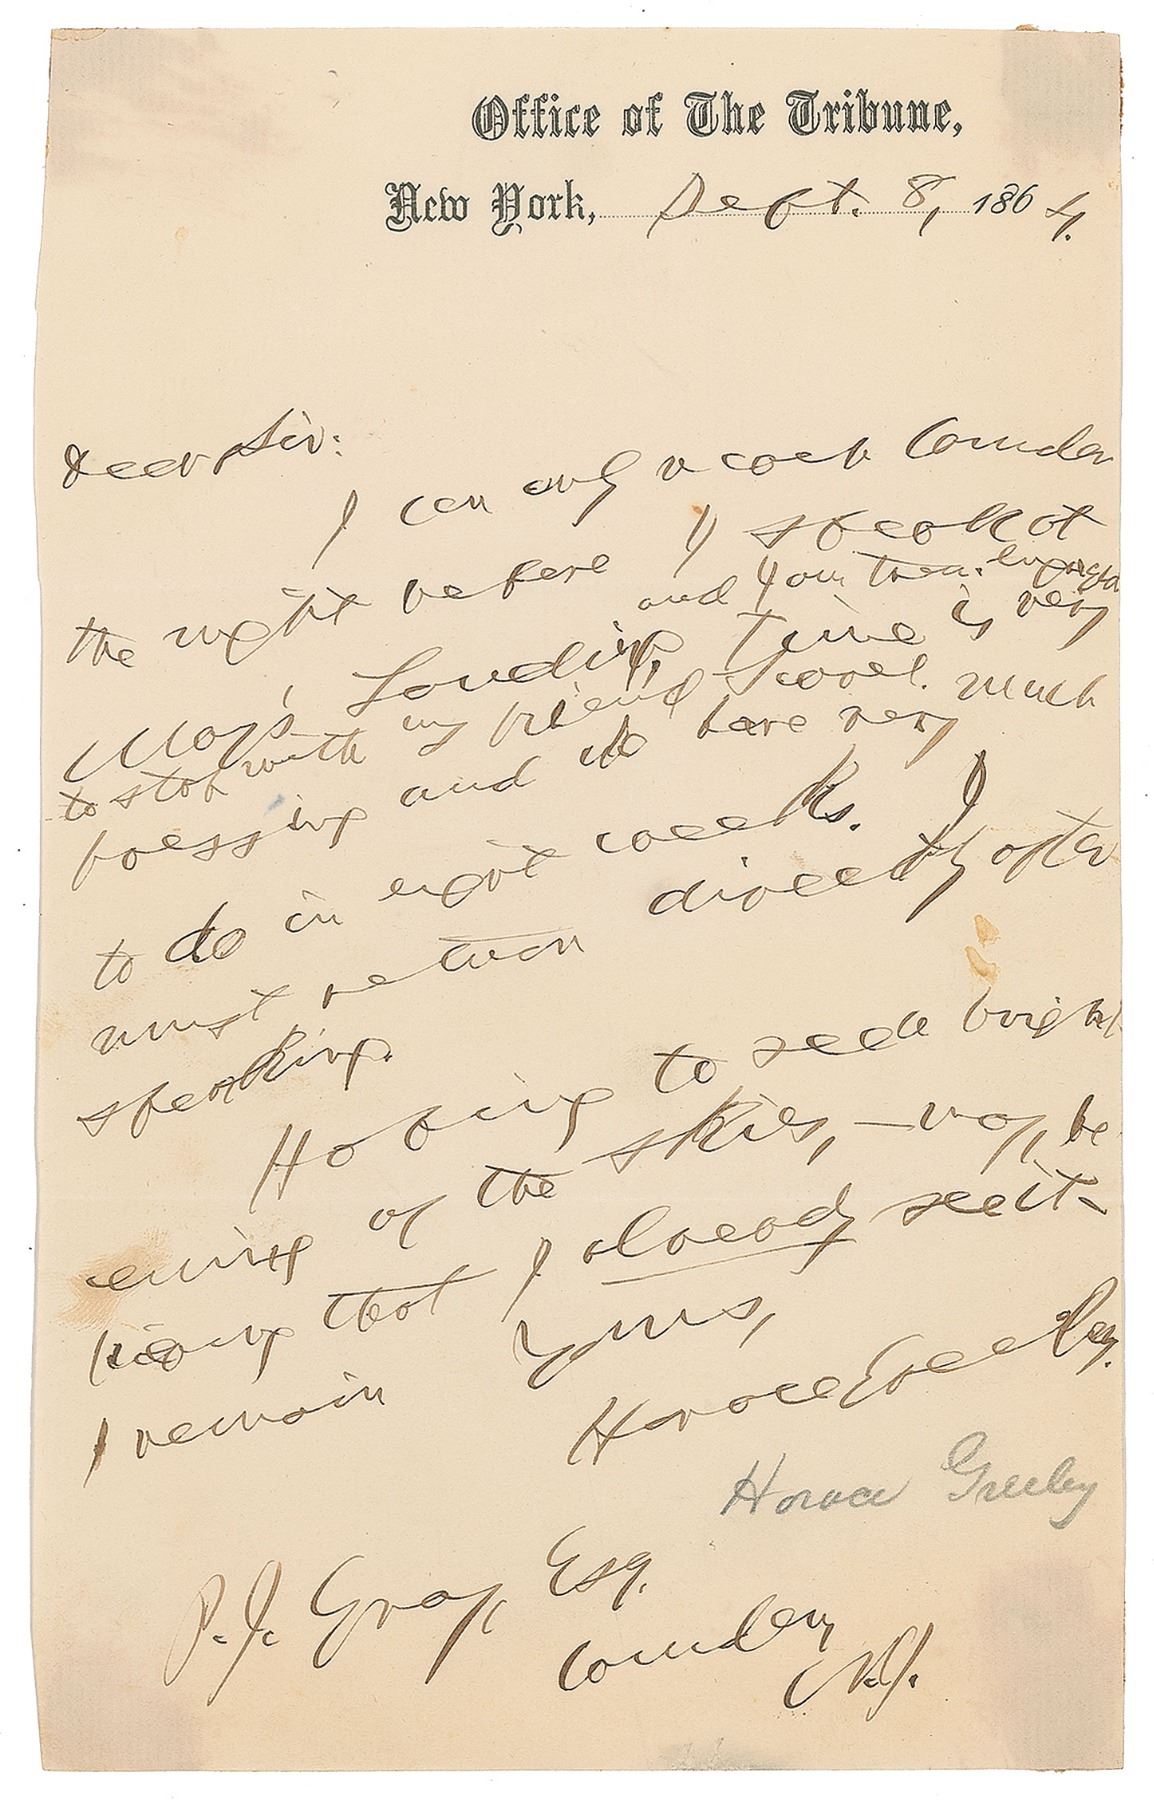 Office of The Tribune,
New York, Sept. 8, 1864.
Dear Sir:
I can only reach Camden
the night before I speak at
May's Landing, and I am then engaged
to stop with my friend Scovel. Time is very
pressing and I have very much
to do in eight weeks. I
must return directly after
speaking.
Hoping to see a bright
ening of the skies, — nay, be
lieving that I already see it —
I remain Yours,
Horace Greeley.
Horace Greeley
P. J. Gray, Esq.
Camden,
N.J.